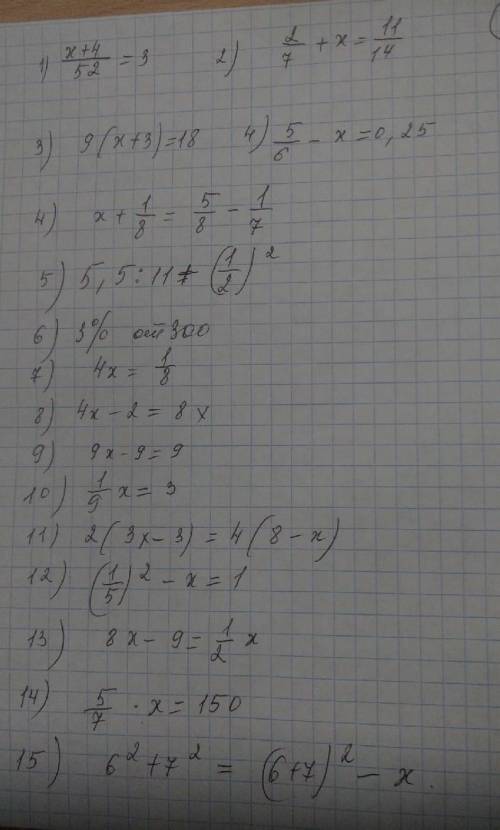 1) (x+4)/52 = 3 2) 2/7 + x = 11/14
3) 9(x+3)=18 4) 5/6 - x = 0,25
4) x + 1/8 = 5/8 - 1/7
5) 5,5:11 + (1/2)²
6) 3% от 300
7) 4x = 1/8
8) 4x - 2 = 8x
9) 9x - 9 = 9
10) 1/9 x = 3
11) 2(3x - 3) = 4(8 - x)
12) (1/5)² - x = 1
13) 8x - 9 = 1/2 x
14) 5/7 · x = 150
15) 6² + 7² = (6+7)² - x.